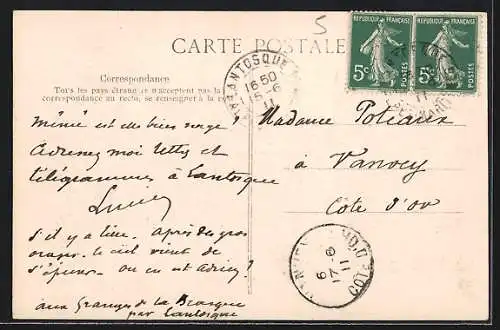 5
CARTE POSTALE
REPUBLIQUE FRANÇAISE
5c
POSTES
REPUBLIQUE FRANÇAISE
5c
POSTES
LANTOSQUE
16 50
15-6
11
Correspondance
Tous les pays étrangers n'acceptent pas la
correspondance au recto, se renseigner à la
Mémé est elle bien
Adressez moi lettres et
télégrammes à Lantosque
Lucien
S'il y a lieu. Après des gros
orages le ciel vient de
s'épurer. Où en est
aux Granges de la Brasque
par Lantosque
Madame Poteaux
à Vanvey
Côte d'Or
6
17-6
11
COTE